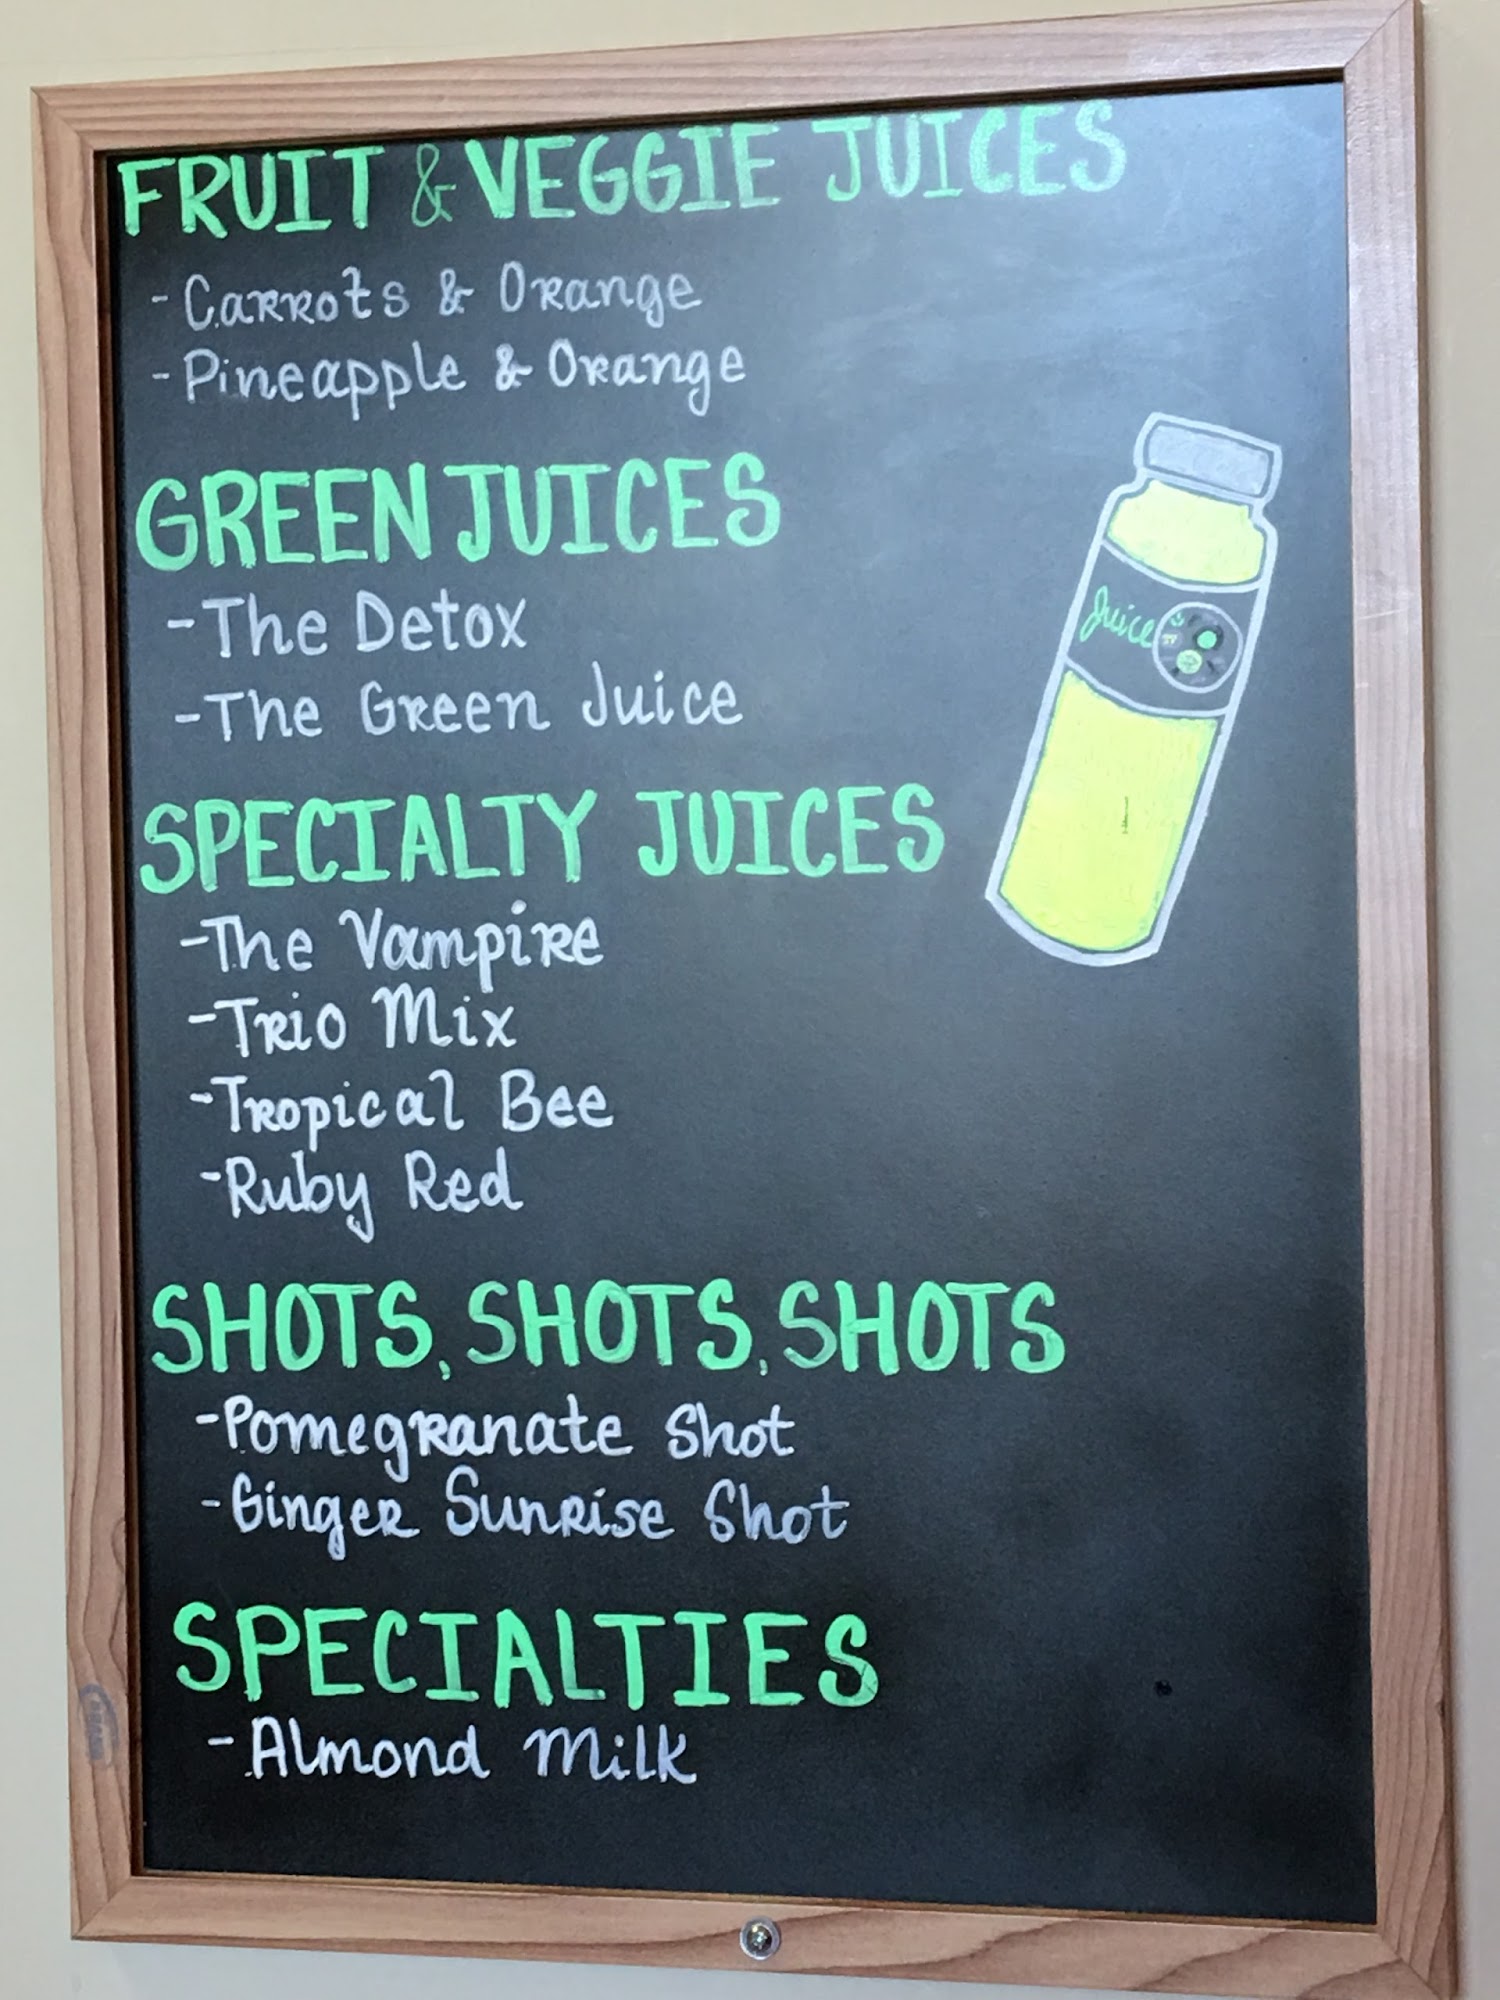 FRUIT & VEGGIE JUICES
- Carrots & Orange
- Pineapple & Orange
GREEN JUICES
- The Detox
- The Green Juice
Juice
SPECIALTY JUICES
- The Vampire
- Trio Mix
- Tropical Bee
- Ruby Red
SHOTS, SHOTS, SHOTS
- Pomegranate Shot
- Ginger Sunrise Shot
SPECIALTIES
- Almond Milk